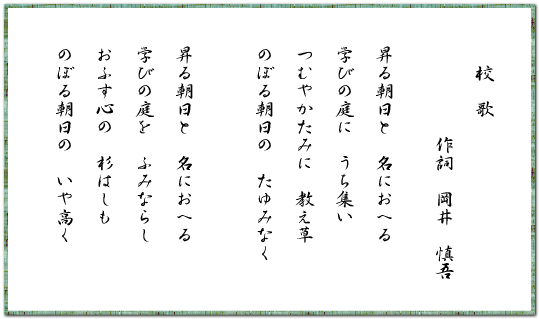 校歌
作詞 岡井 慎吾
昇る朝日と 名におへる
学びの庭に うち集い
つむやかたみに 教え草
のぼる朝日の たゆみなく
昇る朝日と 名におへる
学びの庭を ふみならし
おふす心の 杉はしも
のぼる朝日の いや高く